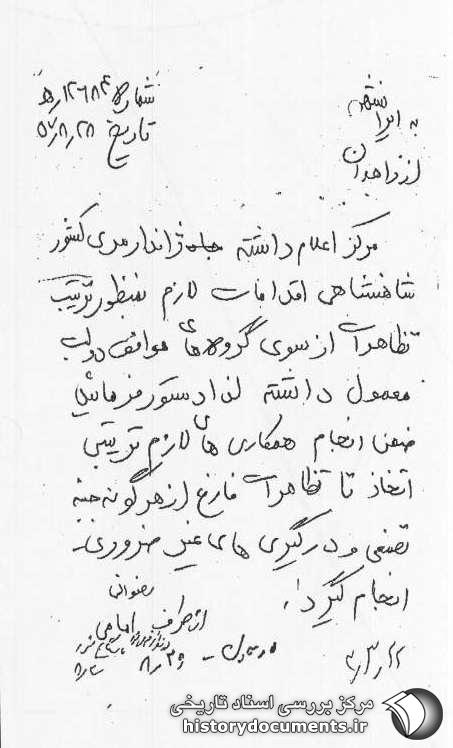 شماره ۱۲۶۸۴/ه
تاریخ ۵۷/۸/۲۸
به ایرانشهر
از زاهدان
مرکز اعلام داشته ژاندارمری کشور
شاهنشاهی اقدامات لازم بمنظور ترتیب
تظاهرات از سوی گروه های موافق دولت
معمول داشته لذا دستور فرمائید
ضمن انجام همکاری های لازم ترتیبی
اتخاذ تا تظاهرات فارغ از هر گونه جنبه
تصنعی و درگیری های غیر ضروری
انجام گیرد.
رضوانی
از طرف امامی
۸/۲۹
مرکز بررسی اسناد تاریخی
historydocuments.ir